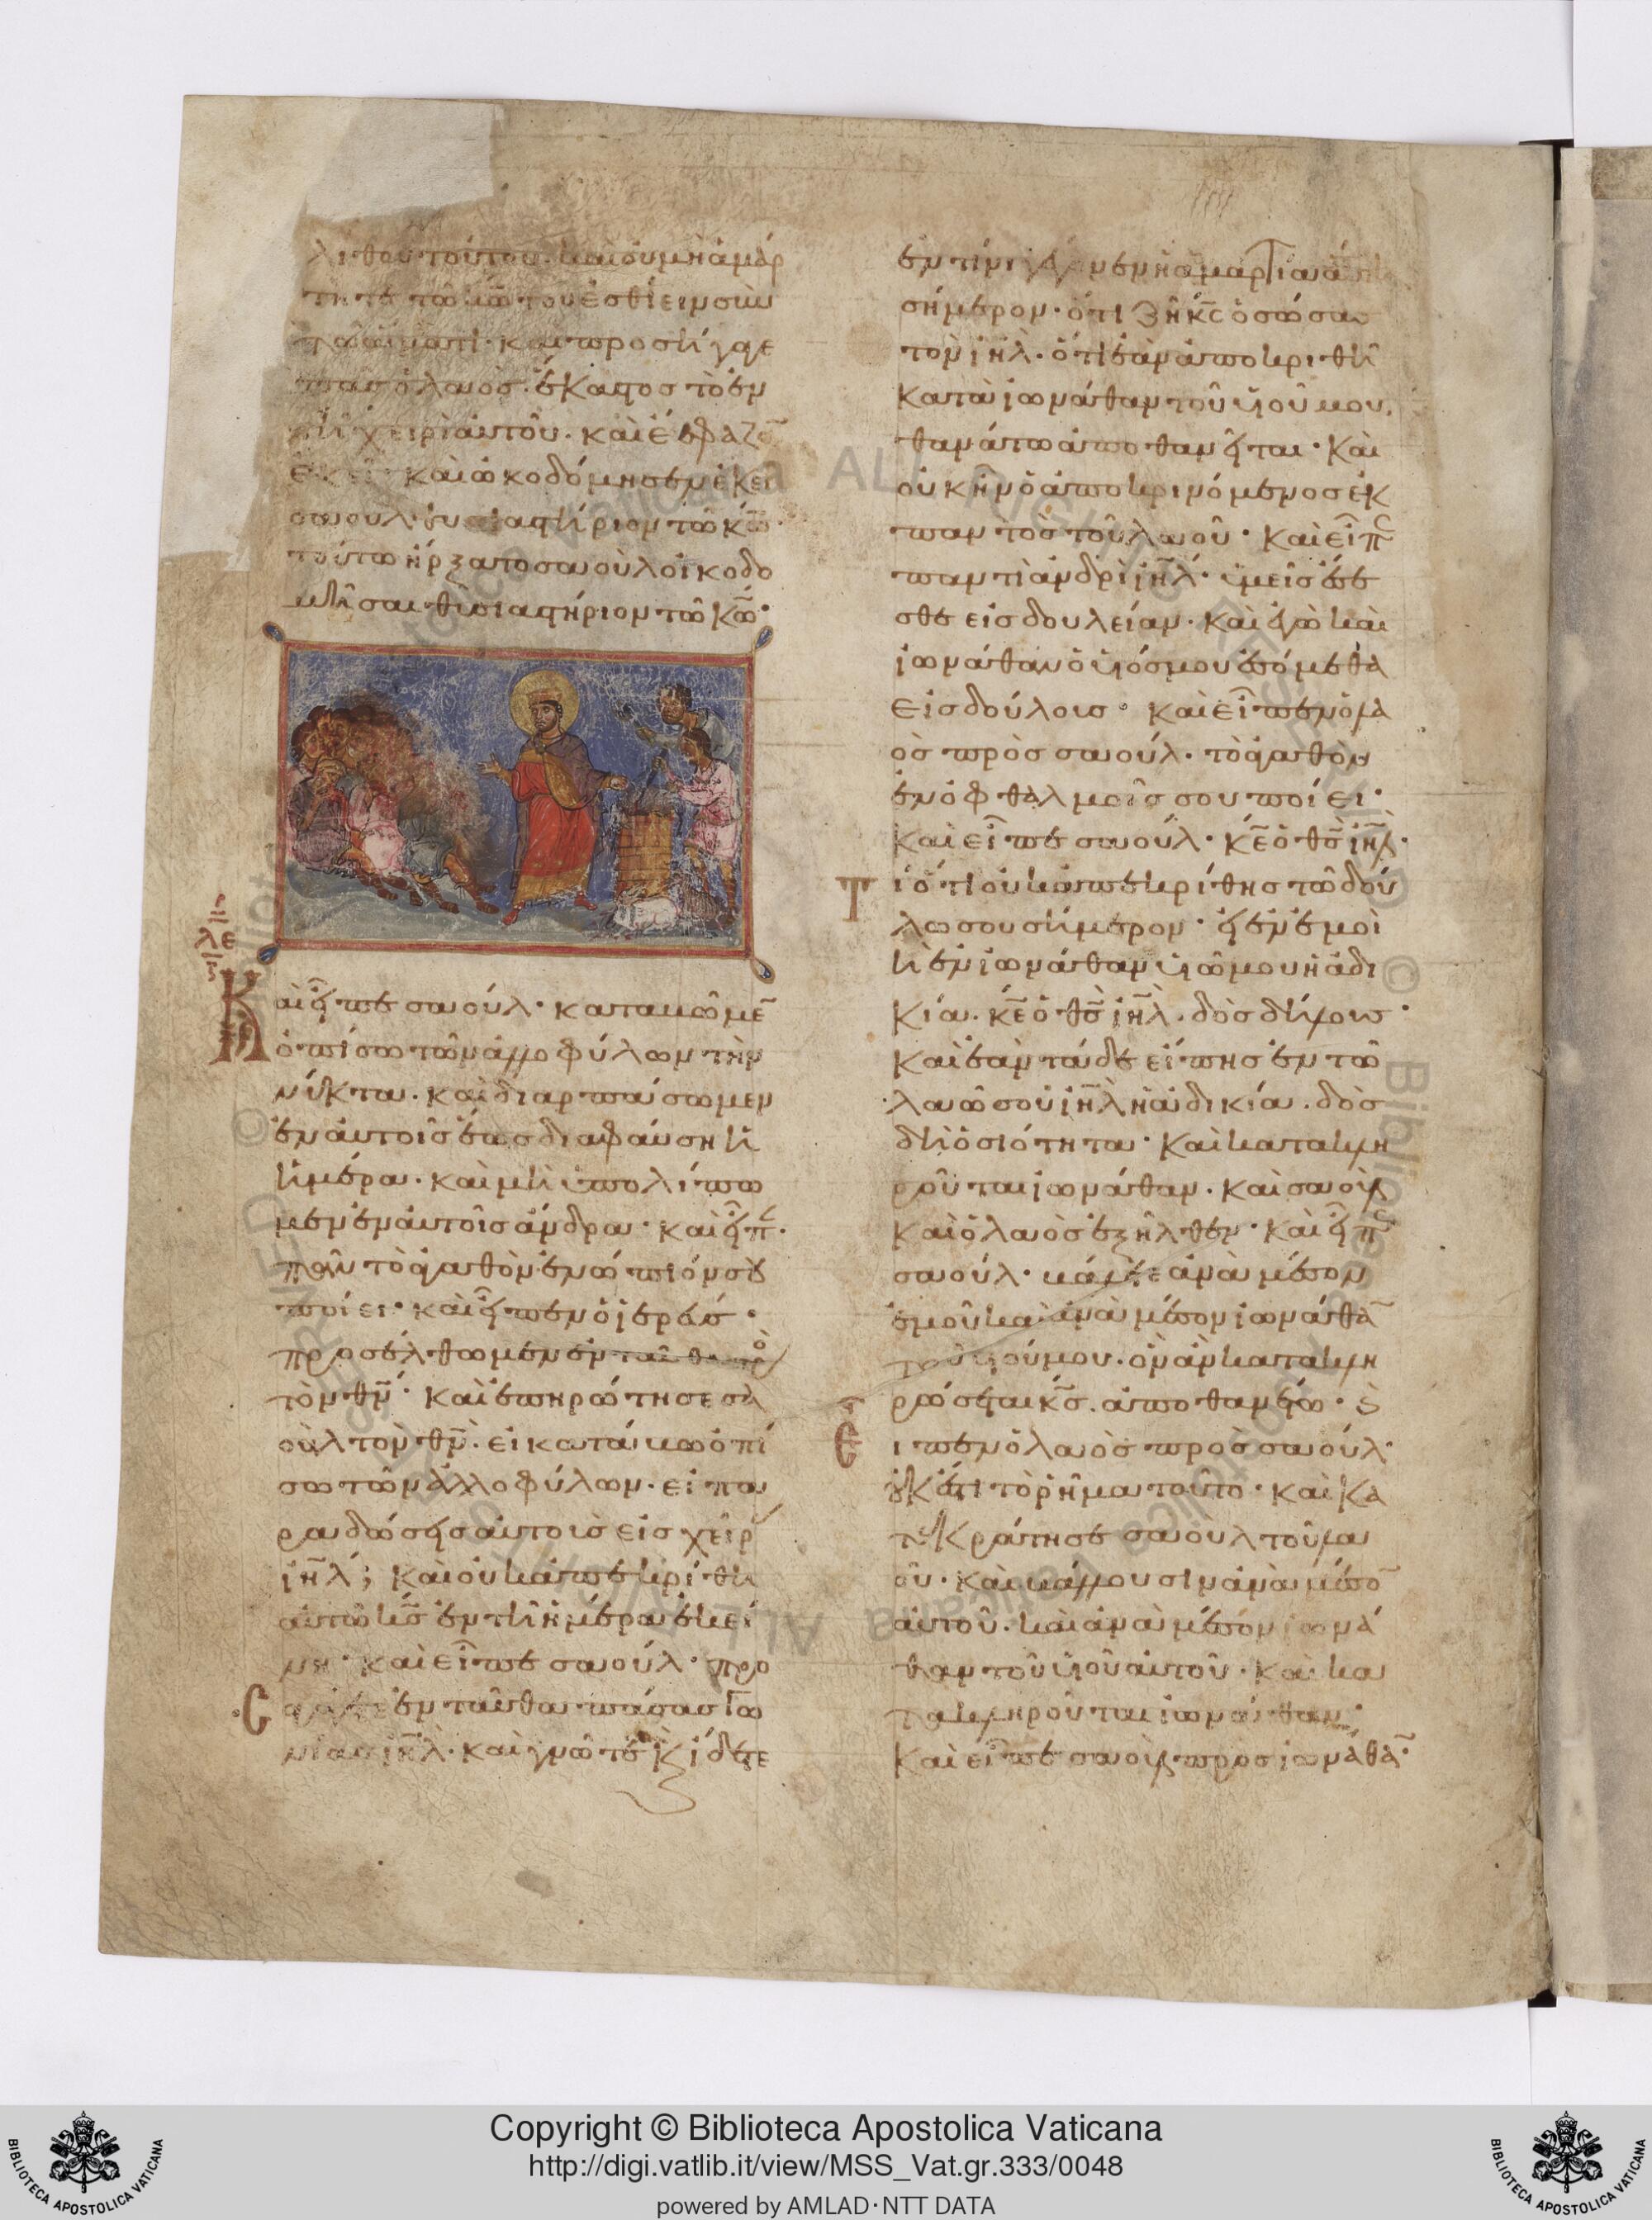 λίθου τούτου. καὶ οὐ μὴ ἁμάρ
τητε τῶ κῶ τοῦ ἐσθίειν σὺν
τῶ αἵματι. καὶ προσήγαγε
πᾶσ ὁ λαὸσ. ἕκαστοσ τὸ ἐν
τῆ χειρὶ αὐτοῦ. καὶ ἔσφαζο̅
ἐκεῖ. καὶ ὠκοδόμησεν ἐκεῖ
σαοὺλ θυσιαστήριον τῶ κω̅.
τούτω ἤρξατο σαοὺλ οἰκοδο
μῆσαι θυσιαστήριον τῶ κω̅.
λε
Καὶ εἶπε σαούλ. καταβῶμε̅
ὀπίσω τῶν ἀλλοφύλων τὴν
νύκτα. καὶ διαρπάσωμεν
ἐν αὐτοῖσ ἕωσ διαφαύση ἡ
ἡμέρα. καὶ μὴ ὑπολίπω
μεν ἐν αὐτοῖσ ἄνδρα. καὶ εἶπ.
πᾶν τὸ ἀγαθὸν ἐνώπιόν σου
ποίει. καὶ εἶπεν ὁ ἱερεύσ.
προσέλθωμεν ἐνταῦθα πρὸ
τὸν θν̅. καὶ ἐπηρώτησε σα
οὺλ τὸν θν̅. εἰ καταβῶ ὀπί
σω τῶν ἀλλοφύλων. εἰ πα
ραδώσεισ αὐτοὺσ εἰσ χεῖρ
ιη̅λ; καὶ οὐκ ἀπεκρίθη
αὐτῶ κσ̅ ἐν τῆ ἡμέρα ἐκεί
νη. καὶ εἶπε σαούλ. προ
σαγάγετε ἐνταῦθα πάσασ γω
νίασ ιη̅λ. καὶ γνῶτε καὶ ἴδετε
ἐν τίνι γέγονεν ἡ ἁμαρτία αὕτη
σήμερον. ὅτι ζῆ κσ̅ ὁ σώσασ
τὸν ιη̅λ. ὅτι ἐὰν ἀποκριθῆ
κατὰ ἰωνάθαν τοῦ υἱοῦ μου.
θανάτω ἀποθανεῖται. καὶ
οὐκ ἦν ὁ ἀποκρινόμενοσ ἐκ
παντὸσ τοῦ λαοῦ. καὶ εἶπ
παντὶ ἀνδρὶ ιη̅λ. ὑμεῖσ ἔσε
σθε εἰσ δουλείαν. καὶ ἐγὼ καὶ
ἰωνάθαν ὁ υἱόσ μου ἐσόμεθα
εἰσ δούλουσ. καὶ εἶπεν ὁ λα
ὸσ πρὸσ σαούλ. τὸ ἀγαθὸν
ἐν ὀφθαλμοῖσ σου ποίει.
καὶ εἶπε σαούλ. κε̅ ὁ θσ̅ ιη̅λ.
Τί ὅτι οὐκ ἀπεκρίθησ τῶ δού
λω σου σήμερον. εἰ ἐν ἐμοὶ
ἢ ἐν ἰωνάθαν υἱῶ μου ἡ ἀδι
κία. κε̅ ὁ θσ̅ ιη̅λ. δὸσ δήλουσ.
καὶ ἐὰν τάδε εἴπησ ἐν τῶ
λαῶ σου ιη̅λ ἡ ἀδικία. δὸσ
δὴ ὁσιότητα. καὶ κατακλη
ροῦται ἰωνάθαν. καὶ σαοὺλ
καὶ ὁ λαὸσ ἐξῆλθεν. καὶ εἶπ
σαούλ. βάλλετε ἀνὰ μέσον
ἐμοῦ καὶ ἀνὰ μέσον ἰωνάθα̅
τοῦ υἱοῦ μου. ὃν ἂν κατακλη
ρώσηται κσ̅. ἀποθανέτω. καὶ
Εἶπεν ὁ λαὸσ πρὸσ σαούλ.
οὐκ ἔστι τὸ ῥῆμα τοῦτο. καὶ κα
τεκράτησε σαοὺλ τοῦ λα
οῦ. καὶ βάλλουσιν ἀνὰ μέσο̅
αὐτοῦ. καὶ ἀνὰ μέσον ἰωνά
θαν τοῦ υἱοῦ αὐτοῦ. καὶ κα
τακληροῦται ἰωνάθαν.
καὶ εἶπε σαοὺλ πρὸσ ἰωνάθα̅.
Copyright © Biblioteca Apostolica Vaticana
http://digi.vatlib.it/view/MSS_Vat.gr.333/0048
powered by AMLAD·NTT DATA
BIBLIOTECA APOSTOLICA VATICANA
BIBLIOTECA APOSTOLICA VATICANA